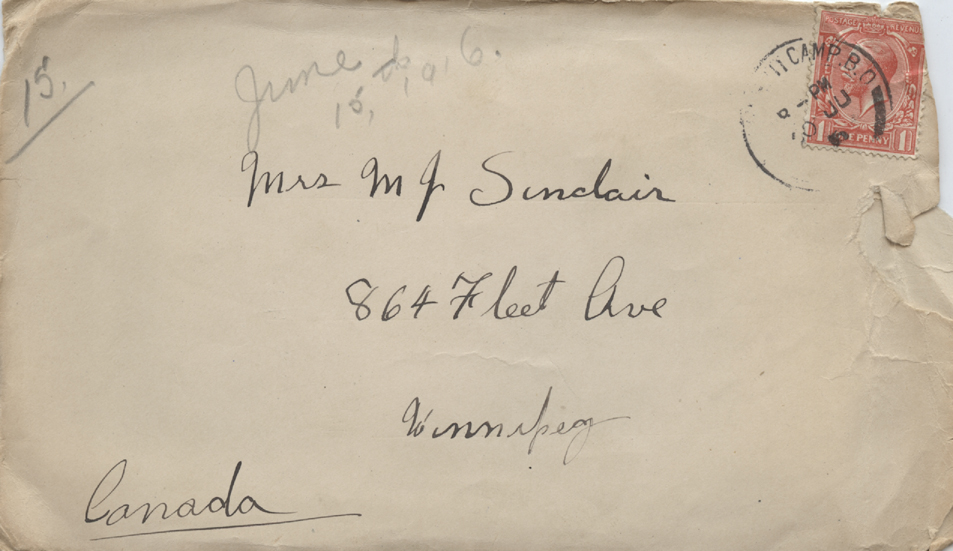 15.
June th 1916.
15,
POSTAGE REVENUE
CAMP. B.O
PM
JU
1 PENNY 1
Mrs M J Sinclair
864 Fleet Ave
Winnipeg
Canada